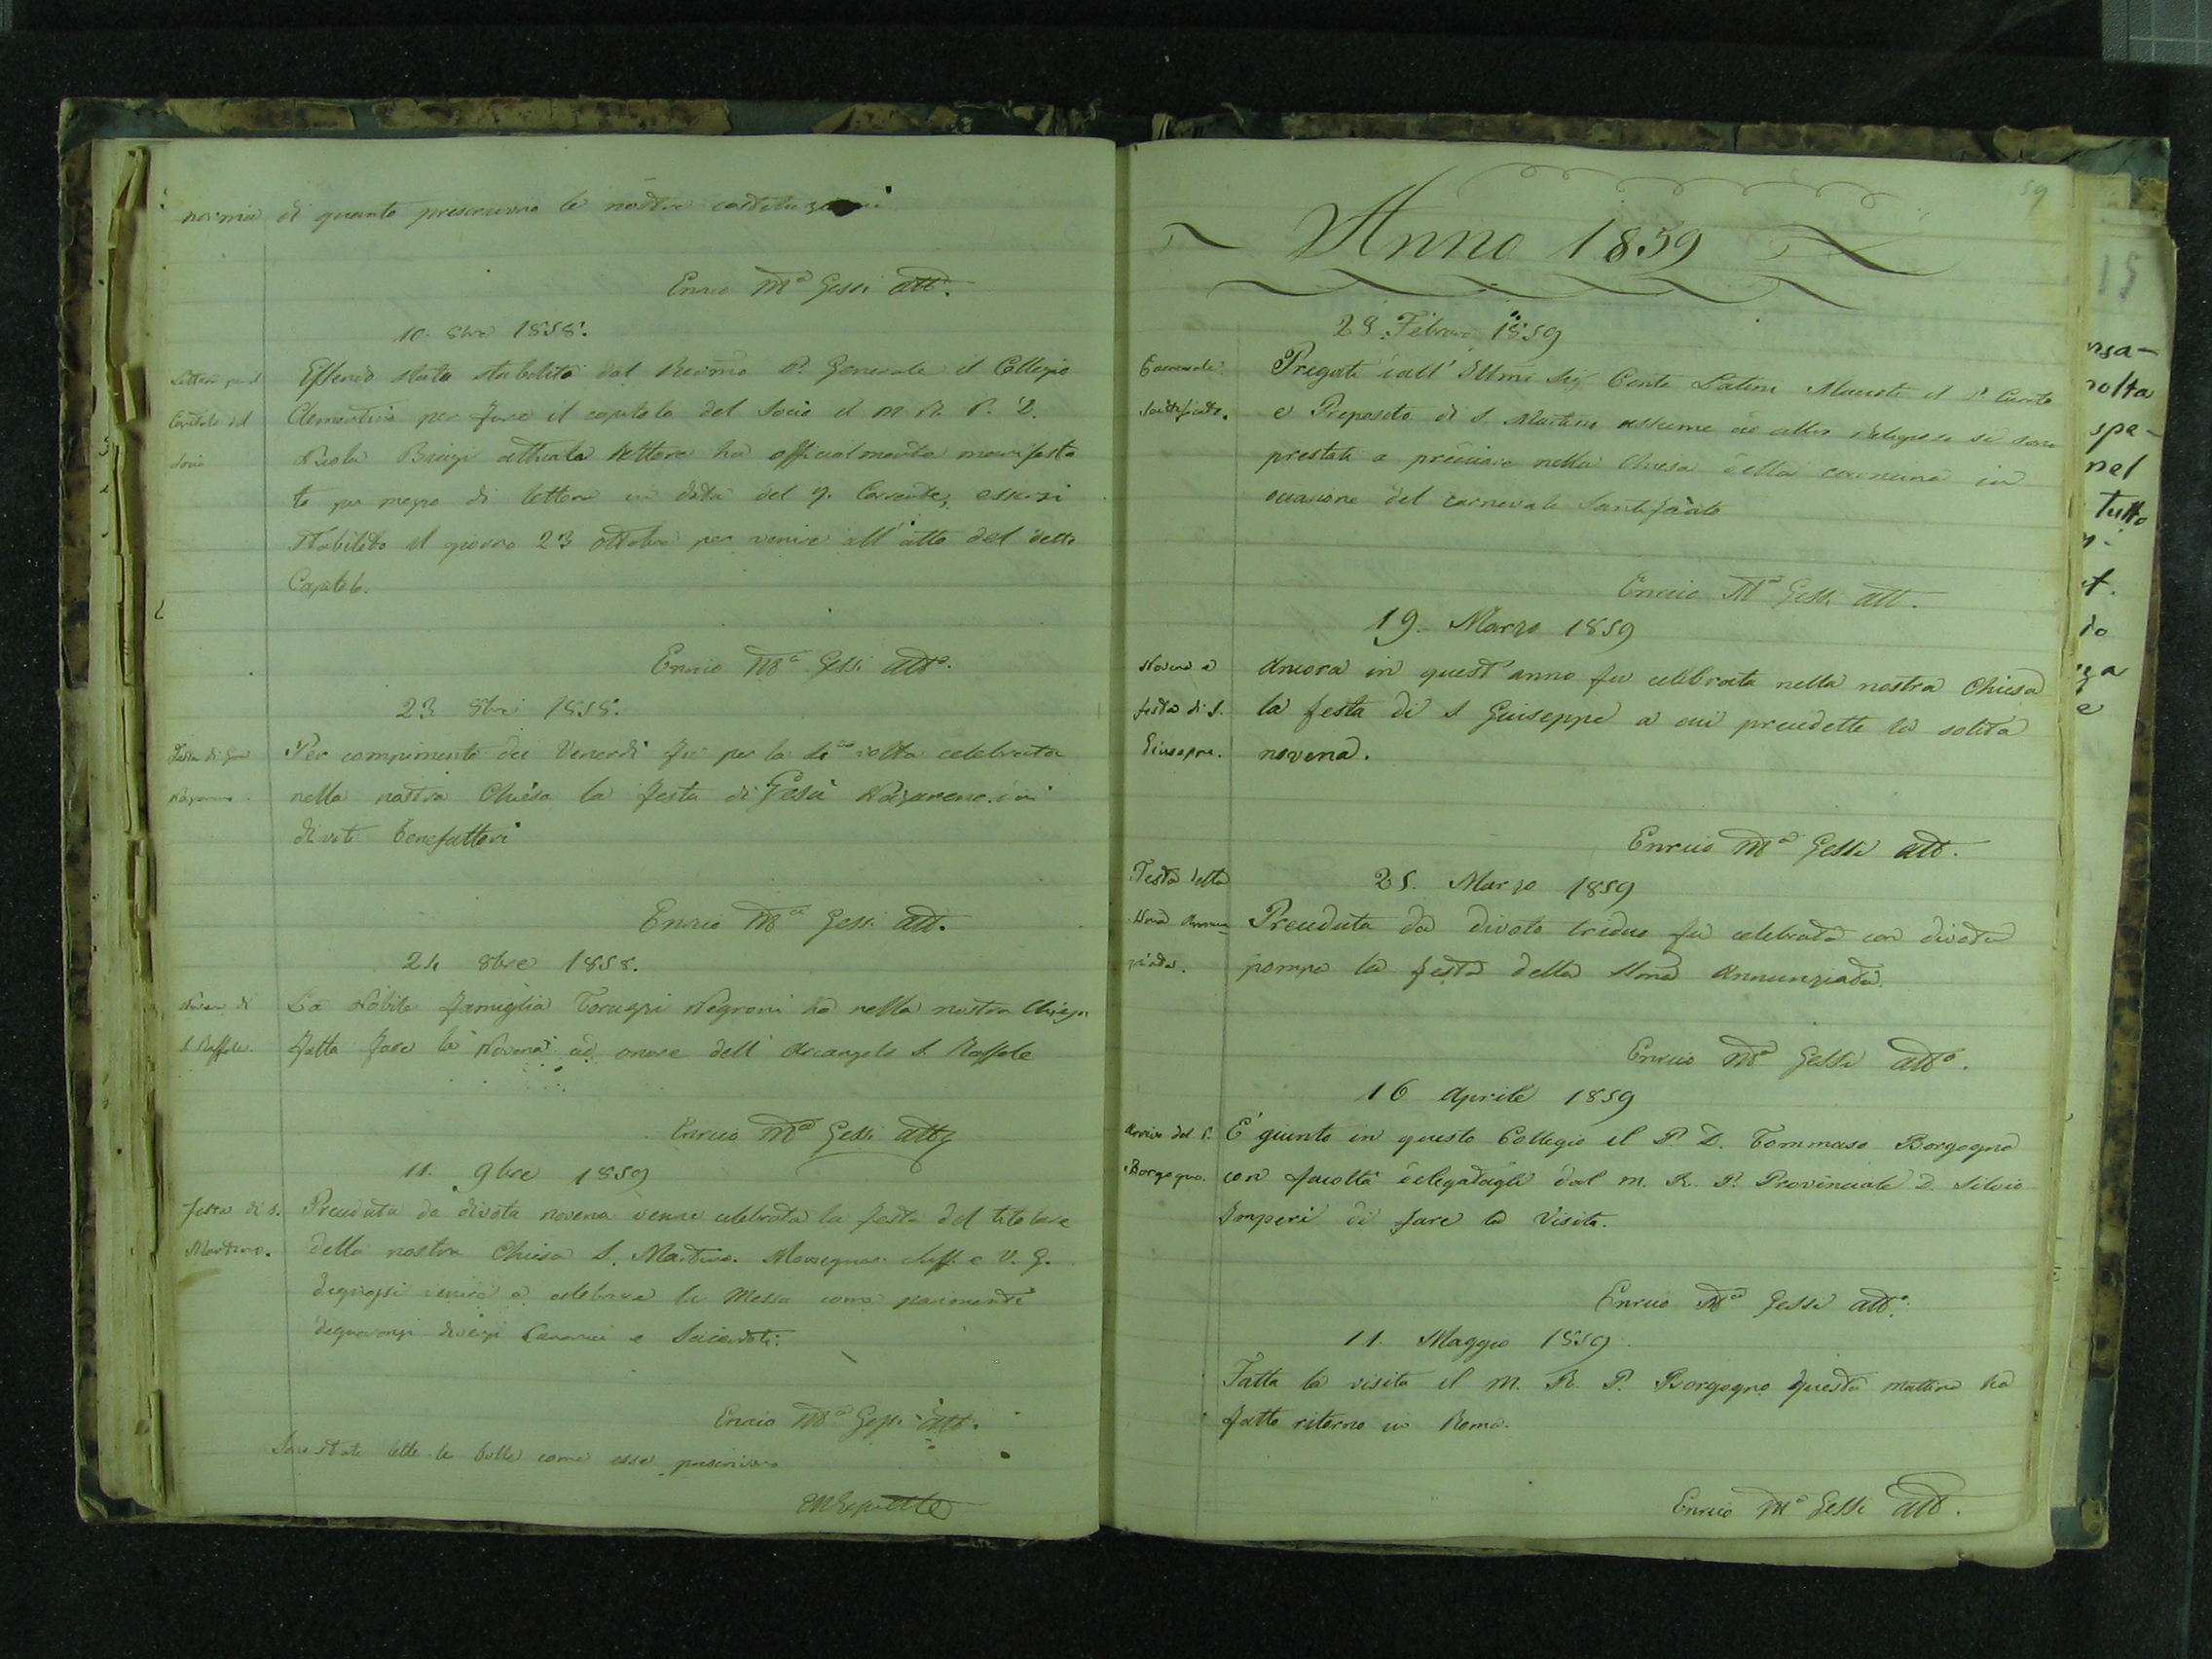 norma di quanto prescrivono le nostre costituzioni
Enrico Mª Gessi attº.
10. 8bre 1858.
Lettera per il
Capitolo del
Socio
Essendo stato stabilito dal Revmo P. Generale il Collegio
Clementino per fare il capitolo del Socio il M. R. P. D.
Nicola Biagi attuale Rettore ha officialmente manifesta
to per mezzo di lettera in data del 7. Corrente, essersi
stabilito il giorno 23 ottobre per venire all' atto del detto
Capitolo.
Enrico Mª Gessi attº.
23 8bre 1858.
Festa di Gesù
Nazareno.
Per compimento dei Venerdì fu per la volta celebrata
nella nostra Chiesa la festa di Gesù Nazareno
divoti benefattori
Enrico Mª Gessi att.
24 8bre 1858.
Novena di
S. Raffaele.
La Nobile famiglia Toruzzi Negroni ha nella nostra Chiesa
fatta fare la Novena ad onore dell' Arcangelo S. Raffaele
Enrico Mª Gessi att
11. 9bre 1859
festa di S.
Martino.
Preceduta da divota novena venne celebrata la festa del titolare
della nostra Chiesa S. Martino. Monsignor Suff. e V. G.
degnossi venire a celebrare la Messa come parimenti
degnaronsi diversi Canonici e Sacerdoti.
Enrico Mª Gessi att.
Sono state lette le bolle come esse prescrivono
59
Anno 1859
Febraro 1859
Carnevale
Santificato.
Pregati dall' Illmo Sig. Conte Latini Macioti il P. Curato
e Preposito di S Martino assieme ad altro Religioso si sono
prestati a predicare nella Chiesa della in
occasione del carnevale Santificato
Enrico Mª Gessi att.
19. Marzo 1859
Novena e
festa di S.
Giuseppe.
Ancora in quest' anno fu celebrata nella nostra Chiesa
la festa di S Giuseppe a cui precedette la solita
novena.
Enrico Mª Gessi att.
Festa della
SSma Annun
ziata.
25. Marzo 1859
Preceduta da divoto triduo fu celebrata con divota
pompa la festa della SSma Annunziata.
Enrico Mª Gessi attº.
16 Aprile 1859
Arrivo del P.
Borgogno.
E' giunto in questo Collegio il P. D. Tommaso Borgogno
con facoltà delegatagli dal M. R. P. Provinciale D. Silvio
Imperi di fare la Visita.
Enrico Mª Gessi attº.
11. Maggio 1859.
Fatta la visita il M. R. P. Borgogno questa mattina ha
fatto ritorno in Roma.
Enrico Mª Gessi att.
15